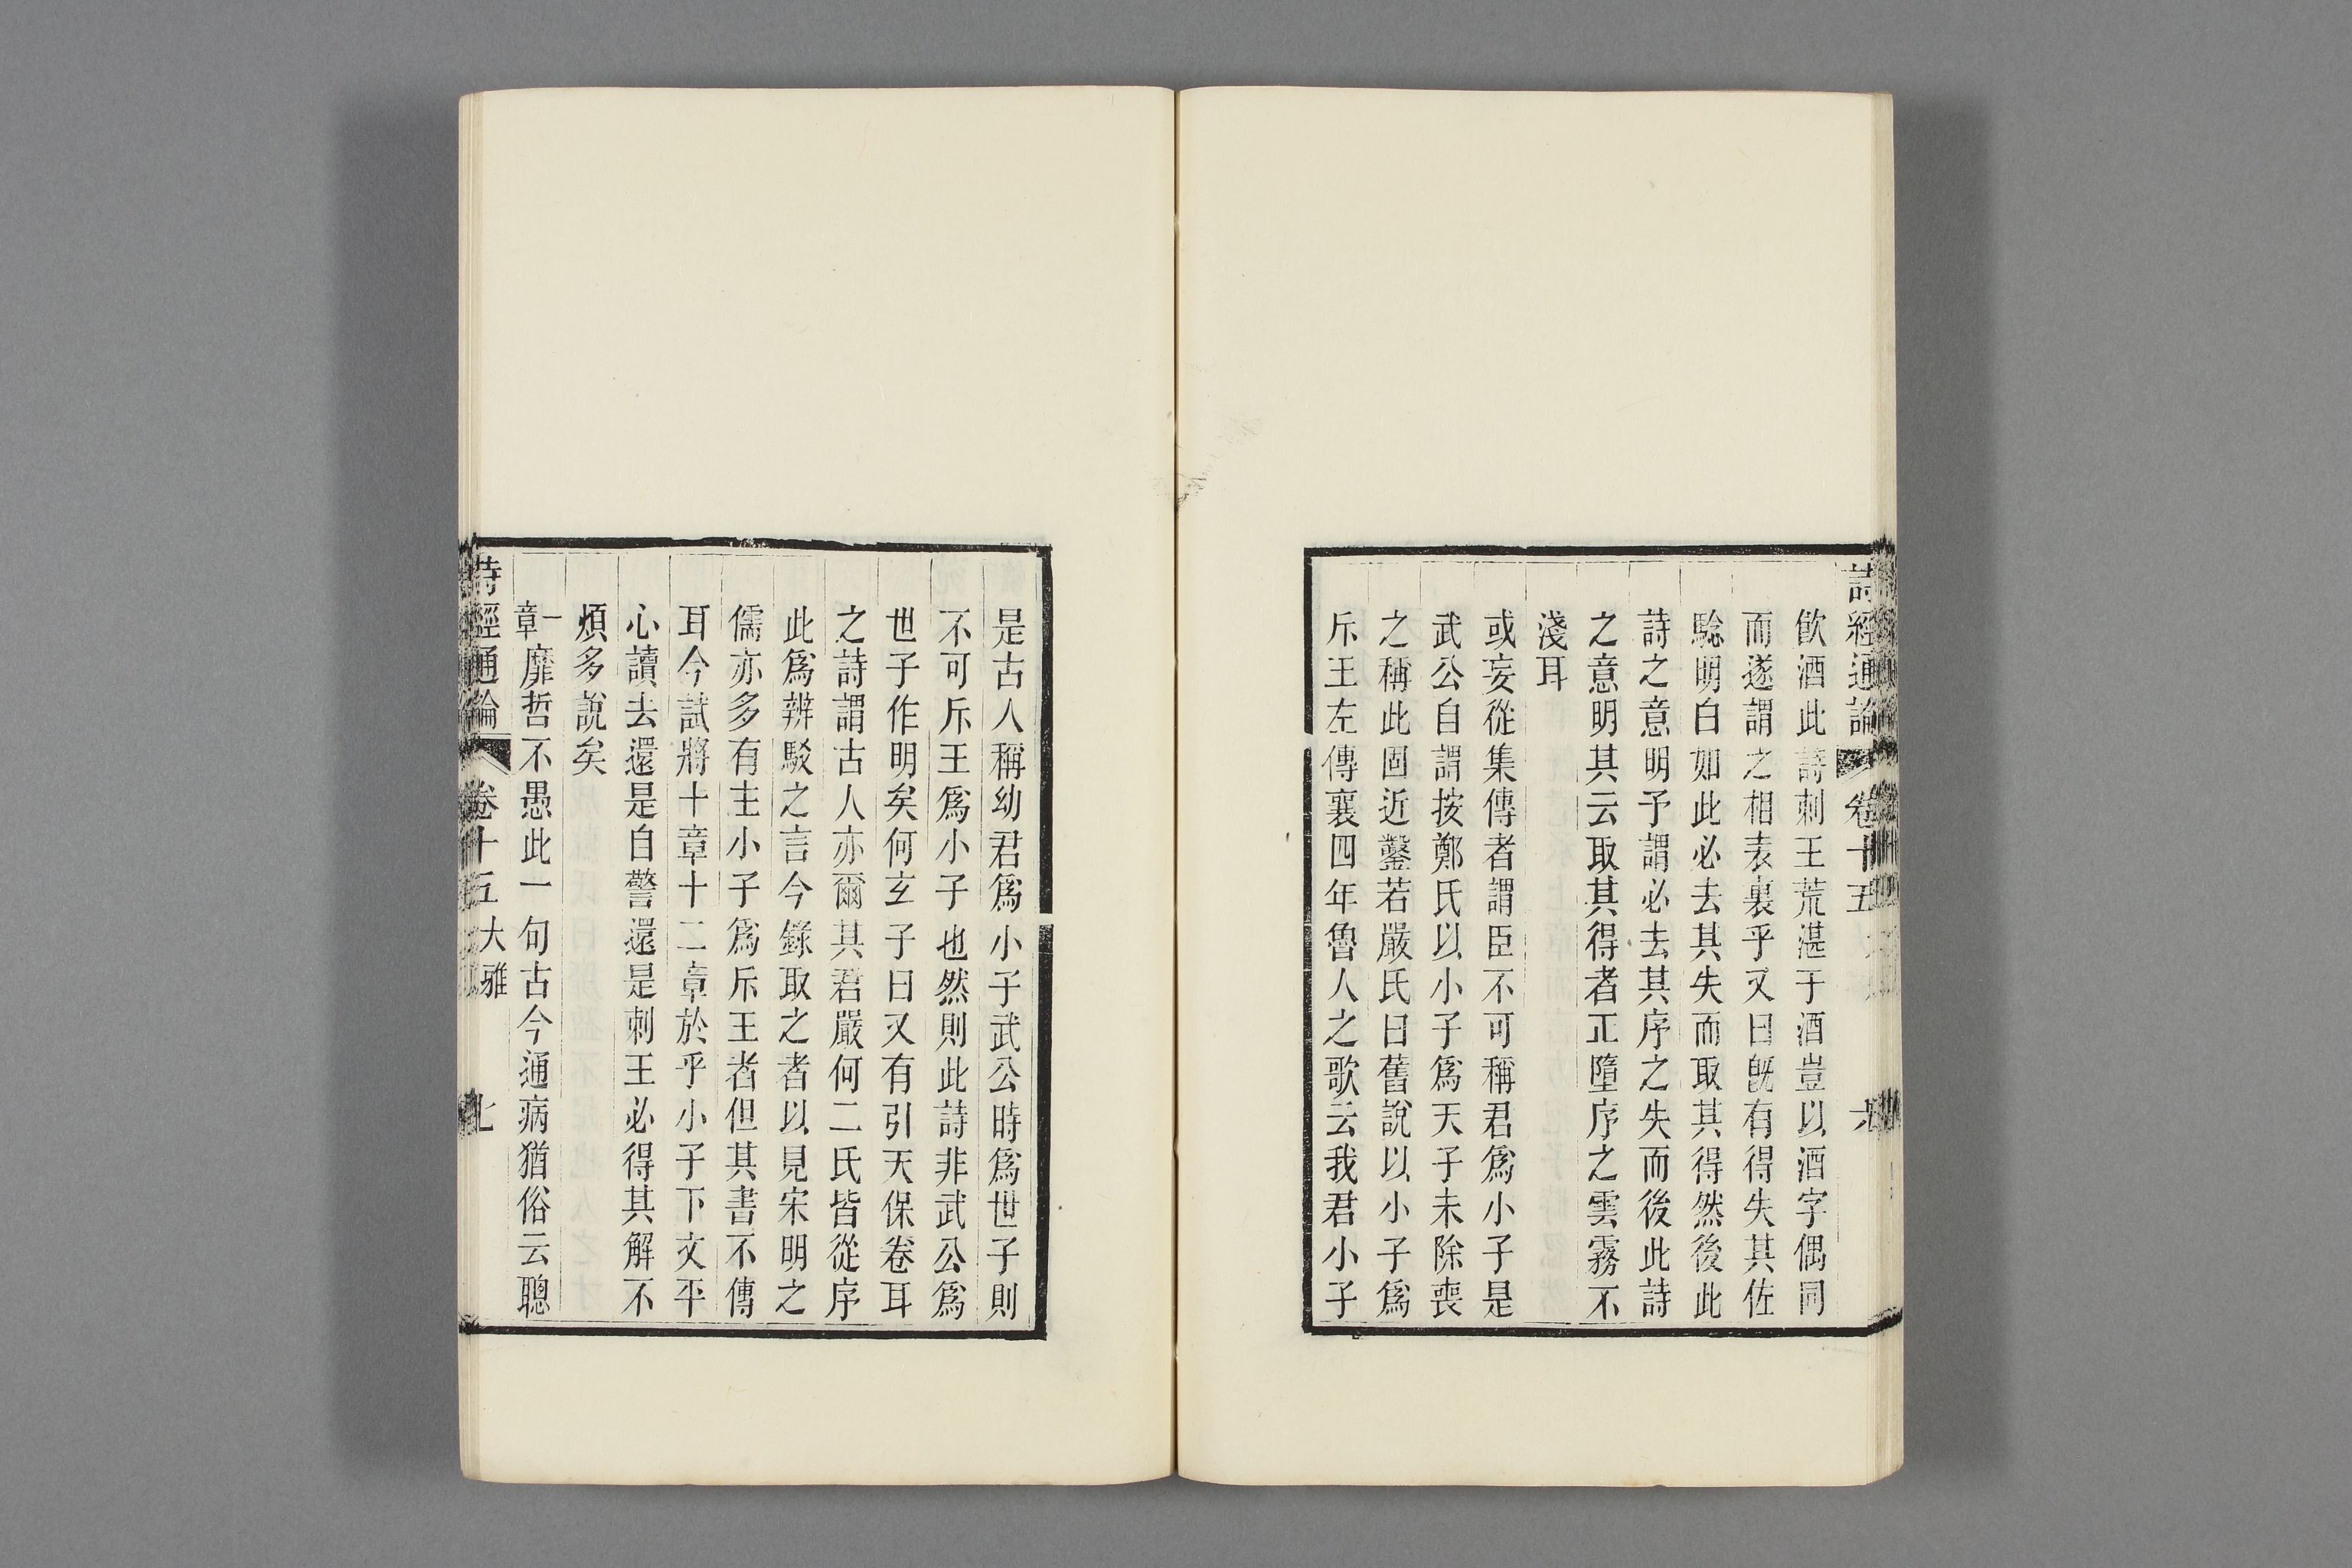 詩經通論 卷十五 六
飲酒此詩刺王荒湛于酒豈以酒字偶同
而遂謂之相表裏乎又曰旣有得失其佐
驗明白如此必去其失而取其得然後此
詩之意明予謂必去其序之失而後此詩
之意明其云取其得者正墮序之雲霧不
淺耳
或妄從集傳者謂臣不可稱君爲小子是
武公自謂按鄭氏以小子爲天子未除喪
之稱此固近鑿若嚴氏曰舊說以小子爲
斥王左傳襄四年魯人之歌云我君小子
是古人稱幼君爲小子武公時爲世子則
不可斥王爲小子也然則此詩非武公爲
世子作明矣何玄子曰又有引天保卷耳
之詩謂古人亦爾其君嚴何二氏皆從序
此爲辨駁之言今錄取之者以見宋明之
儒亦多有主小子爲斥王者但其書不傳
耳今試將十章十二章於乎小子下文平
心讀去還是自警還是刺王必得其解不
煩多說矣
一章靡哲不愚此一句古今通病猶俗云聰
詩經通論 卷十五 大雅 七